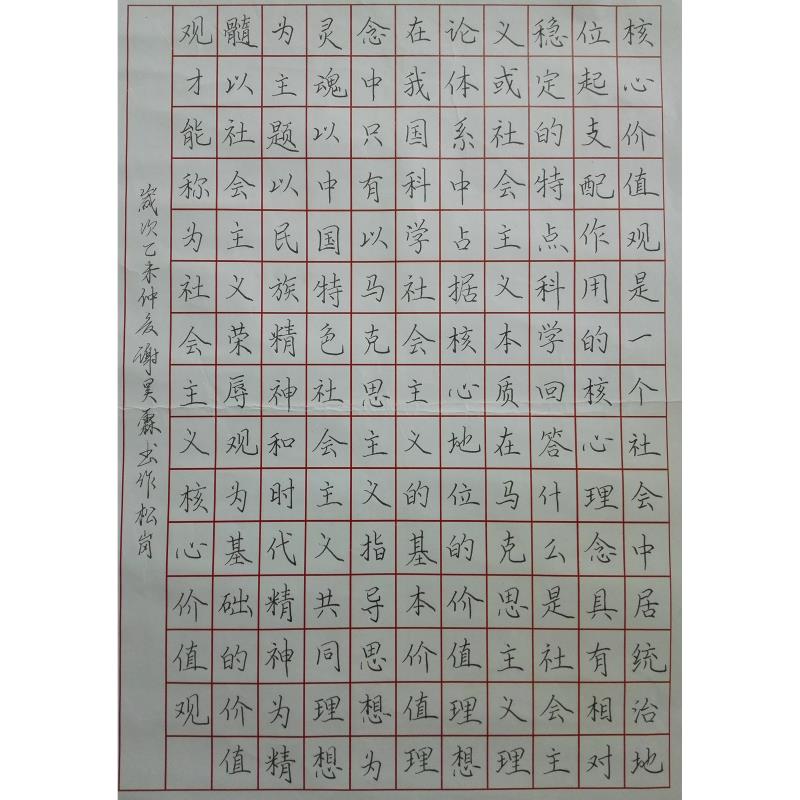 核心价值观是一个社会中居统治地
位起支配作用的核心理念具有相对
稳定的特点科学回答什么是社会主
义或社会主义本质在马克思主义理
论体系中占据核心地位的价值理想
在我国科学社会主义的基本价值理
念中只有以马克思主义指导思想为
灵魂以中国特色社会主义共同理想
为主题以民族精神和时代精神为精
髓以社会主义荣辱观为基础的价值
观才能称为社会主义核心价值观
岁次乙未仲冬谢昊霖书作松岗